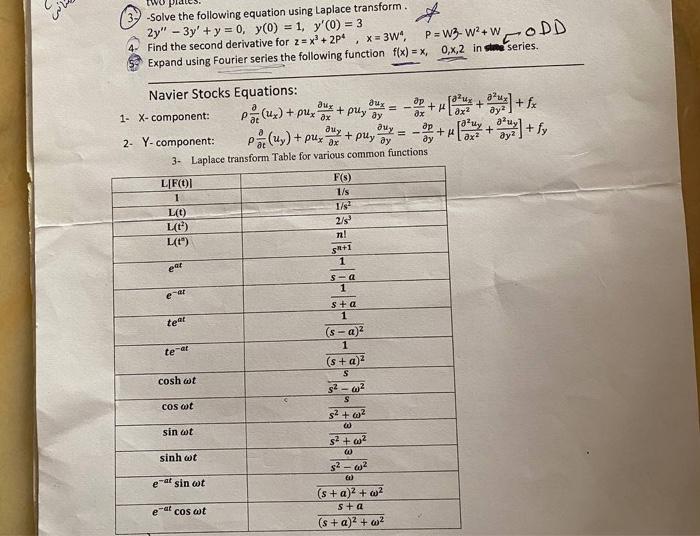 two plates.
3- -Solve the following equation using Laplace transform.
2y'' − 3y' + y = 0, y(0) = 1, y'(0) = 3
4- Find the second derivative for z = x³ + 2P⁴ , x = 3W⁴, P = W3- W² + W
5- Expand using Fourier series the following function f(x) = x, 0,x,2 in series. ODD
Navier Stocks Equations:
1- X-component: ρ ∂/∂t (uₓ) + ρuₓ ∂uₓ/∂x + ρu_y ∂uₓ/∂y = − ∂p/∂x + μ [∂²uₓ/∂x² + ∂²uₓ/∂y²] + fₓ
2- Y-component: ρ ∂/∂t (u_y) + ρuₓ ∂u_y/∂x + ρu_y ∂u_y/∂y = − ∂p/∂y + μ [∂²u_y/∂x² + ∂²u_y/∂y²] + f_y
3- Laplace transform Table for various common functions
L[F(t)] F(s)
1 1/s
L(t) 1/s²
L(t²) 2/s³
L(tⁿ) n!/sⁿ⁺¹
e^at 1/(s − a)
e^−at 1/(s + a)
te^at 1/(s − a)²
te^−at 1/(s + a)²
cosh ωt s/(s² − ω²)
cos ωt s/(s² + ω²)
sin ωt ω/(s² + ω²)
sinh ωt ω/(s² − ω²)
e^−at sin ωt ω/((s + a)² + ω²)
e^−at cos ωt (s + a)/((s + a)² + ω²)